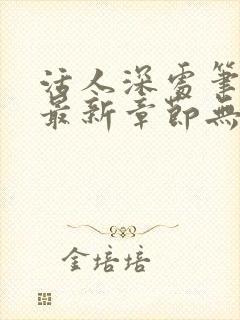 活人深處筆
最新章節無
金培培